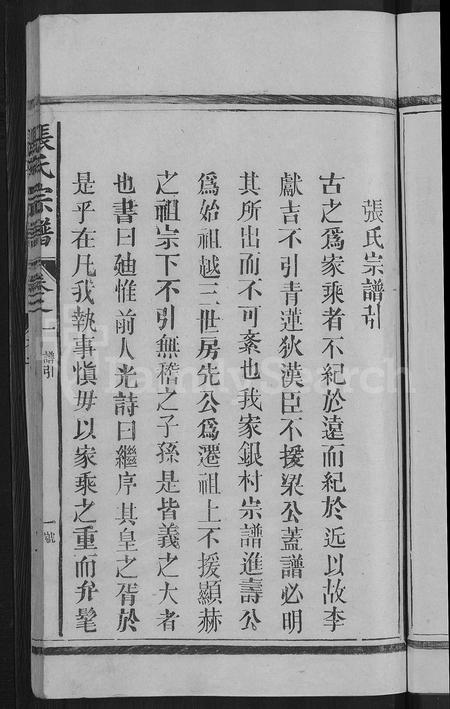 張氏宗譜引
古之爲家乘者不紀於遠而紀於近以故李
獻吉不引青蓮狄漢臣不援梁公蓋譜必明
其所出而不可紊也我家銀村宗譜進壽公
爲始祖越三世房先公爲遷祖上不援顯赫
之祖宗下不引無稽之子孫是皆義之大者
也書曰廸惟前人光詩曰繼序其皇之胥於
是乎在凡我執事愼毋以家乘之重而弁髦
張氏宗譜
卷之
譜引
一號
FamilySearch